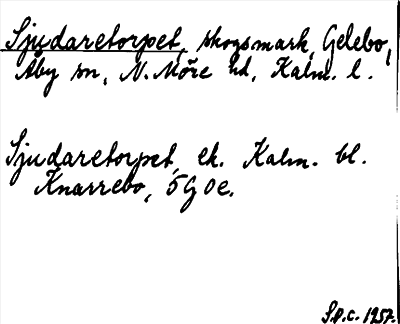 Sjudaretorpet, skogsmark, Gelebo,
Åby sn, N. Möre hd, Kalm. l.
Sjudaretorpet, ek. Kalm. bl.
Knarrebo, 5G0e.
S.P.C. 1957.